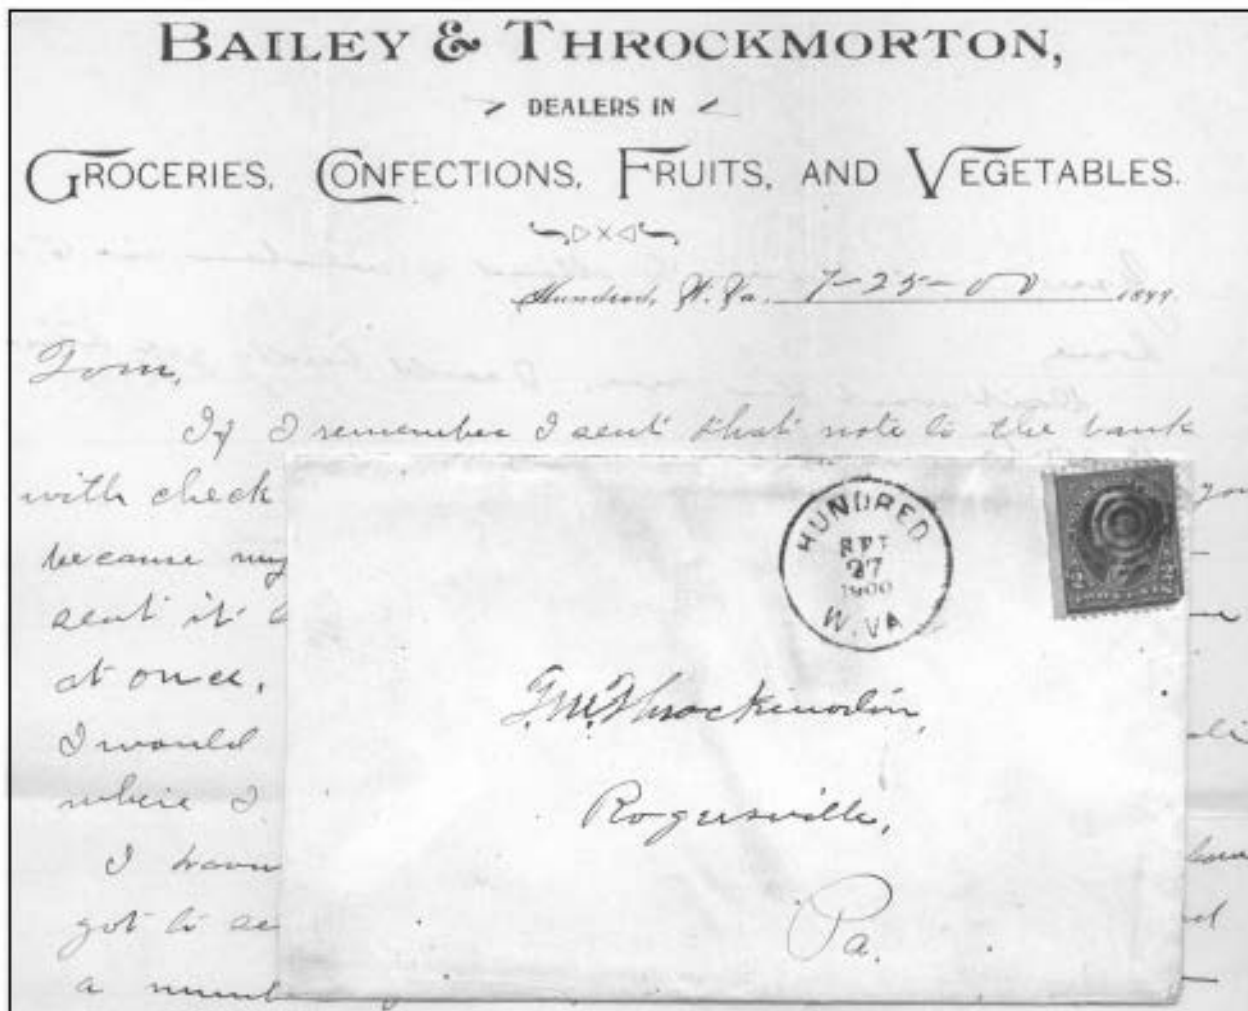 BAILEY & THROCKMORTON,
DEALERS IN
GROCERIES, CONFECTIONS, FRUITS, AND VEGETABLES.
Hundred, W. Va. 7-25-00 1899.
Tom,
If I remember I sent that note to the bank
with check you
because my
sent it
at once,
I would
where I
I
got to
a
HUNDRED
SEPT
27
1900
W. VA
T. M. Throckmorton,
Rogersville,
Pa.